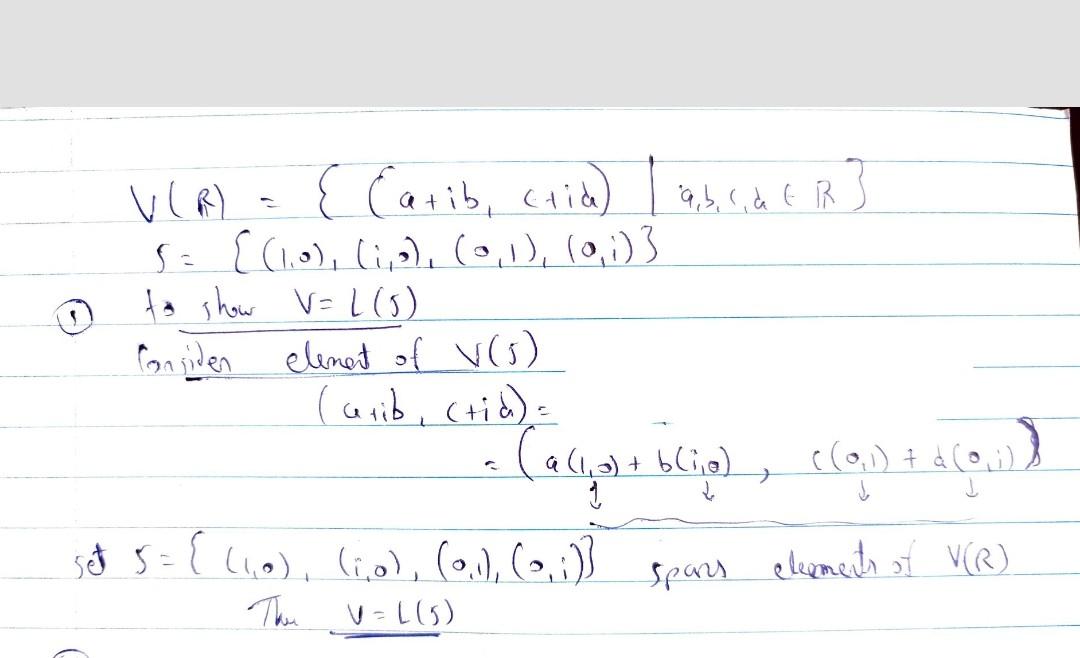 V(R) = { (a+ib, c+id) | a,b,c,d ∈ R }
S = { (1,0), (i,0), (0,1), (0,i) }
① to show V = L(S)
Consider element of V(S)
(a+ib, c+id) =
= ( a(1,0) + b(i,0) , c(0,1) + d(0,i) )
↓ ↓ ↓ ↓
set S = { (1,0), (i,0), (0,1), (0,i) } spans elements of V(R)
V = L(S)